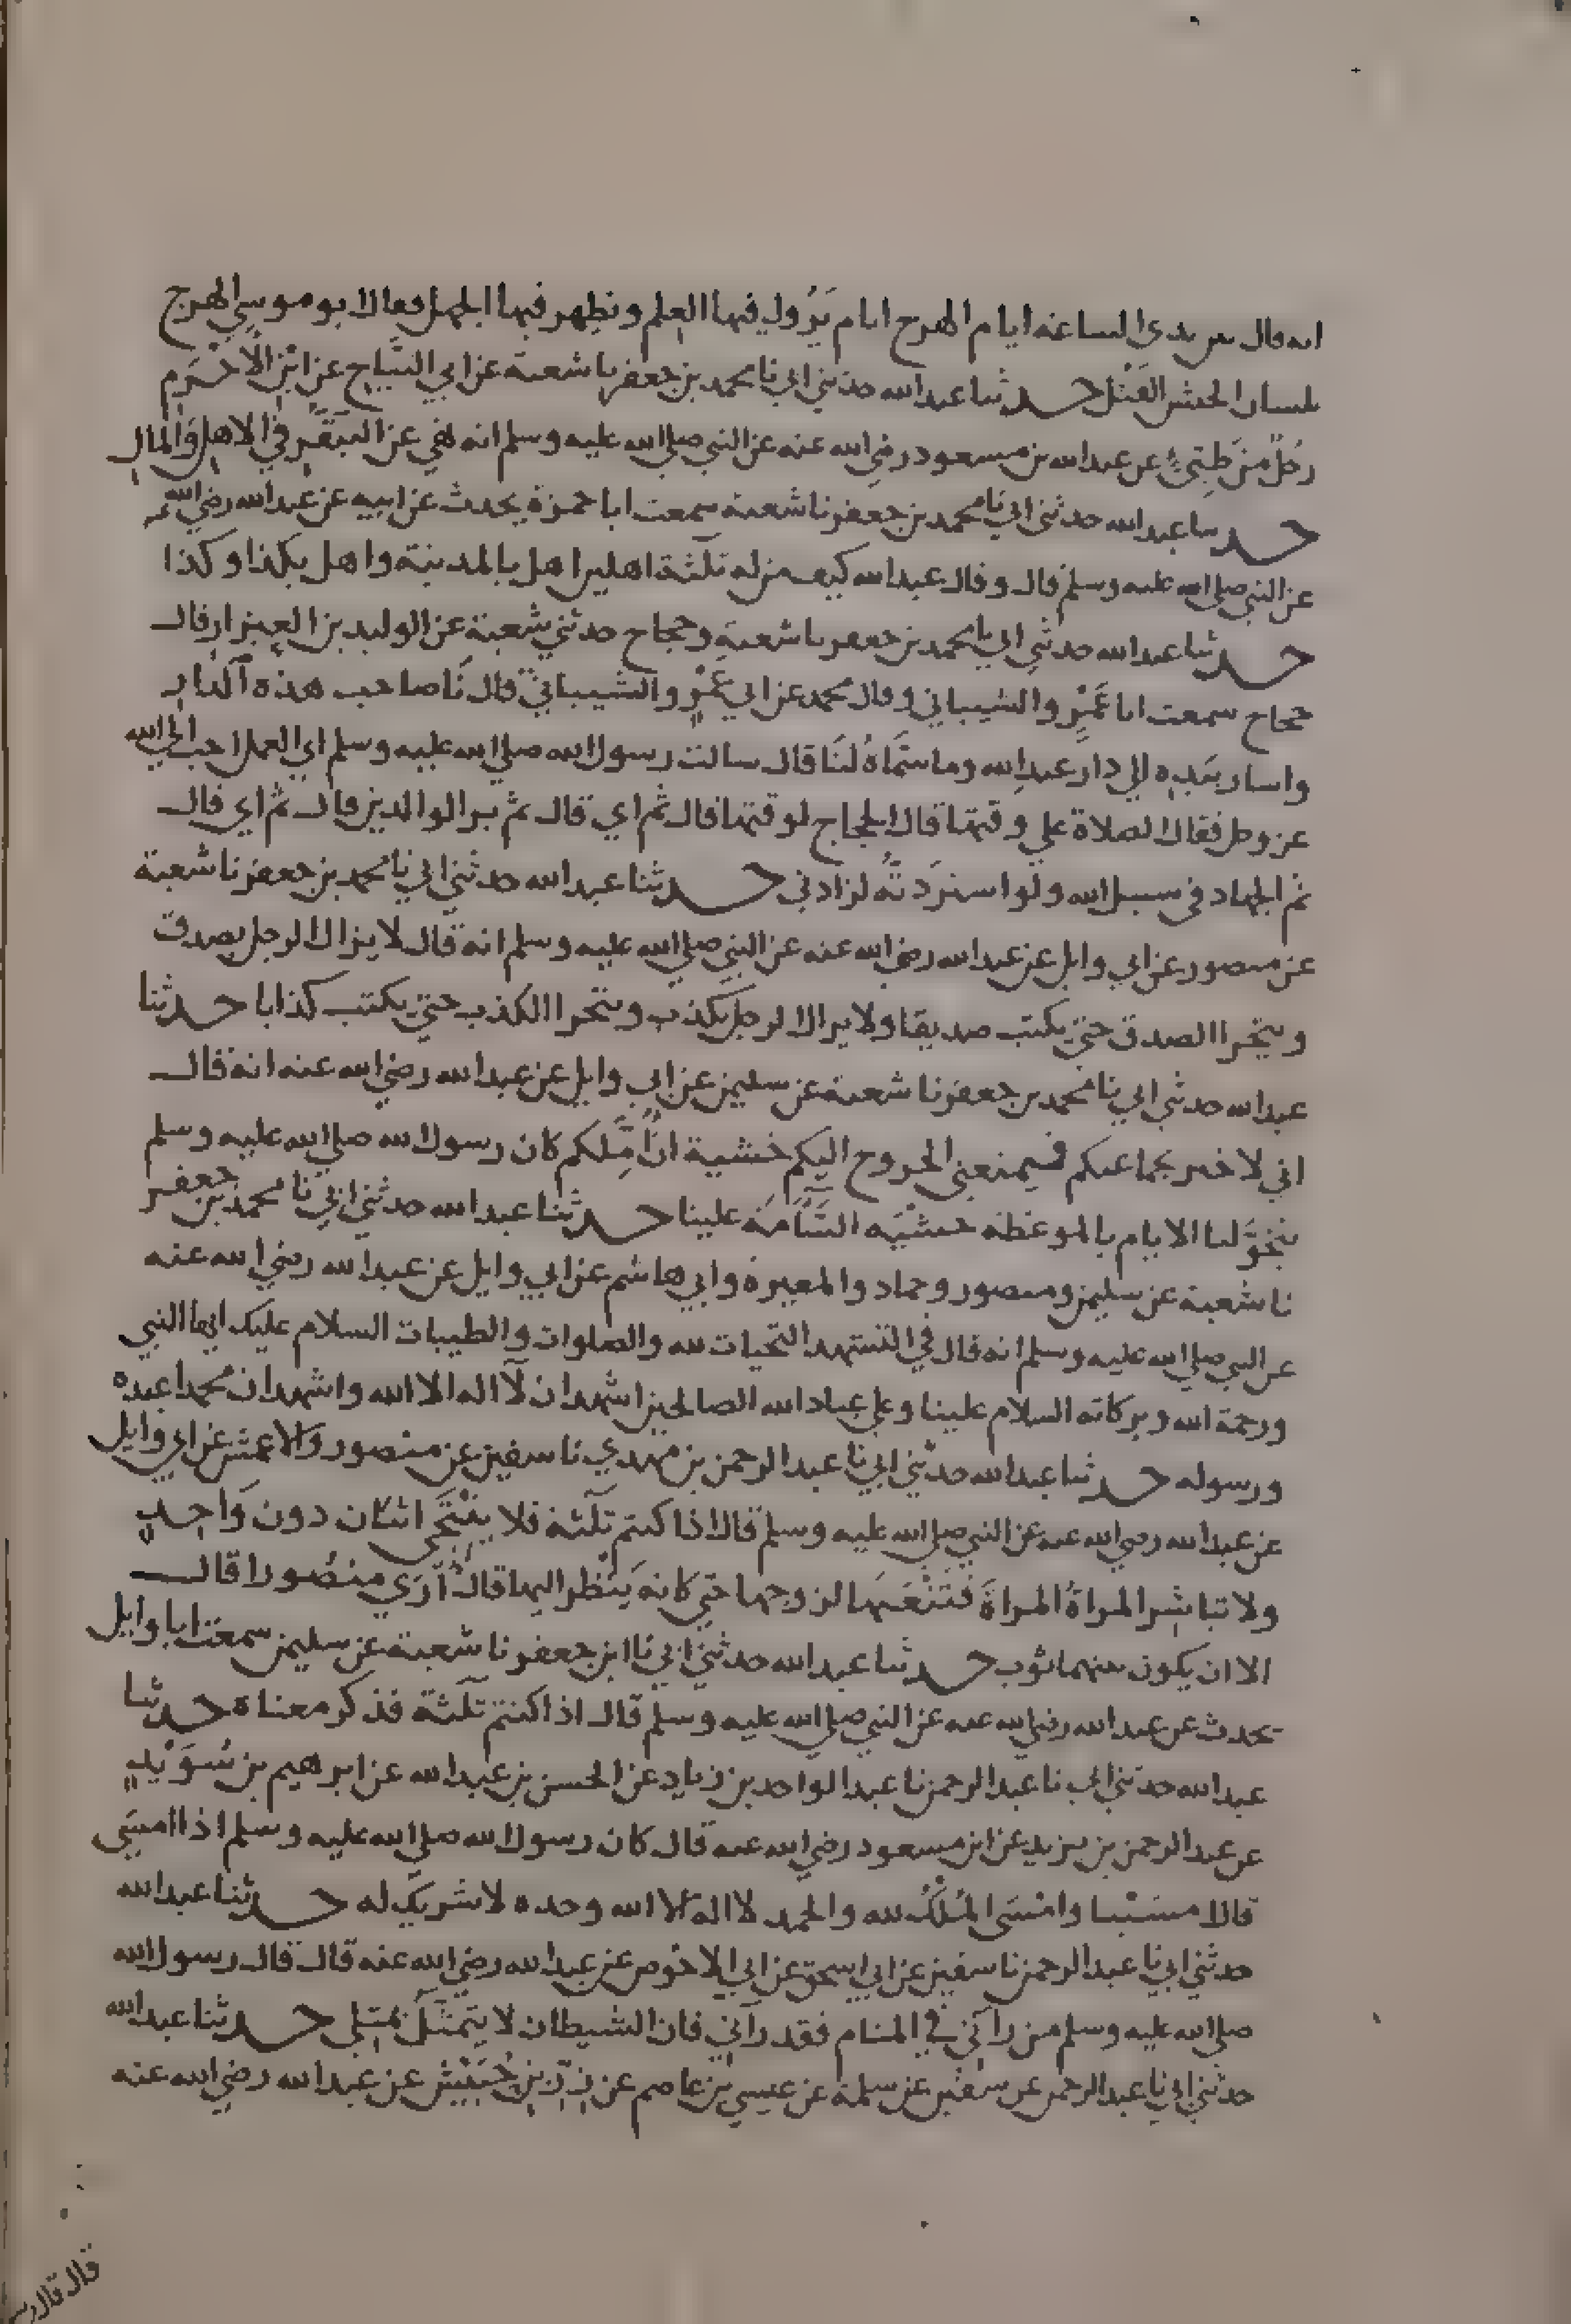 انه قال بين يدي الساعه ايام الهرج ايام يزول فيها العلم ويظهر فيها الجهل فقال ابو موسي الهرج
بلسان الحبش القتل حدثنا عبدالله حدثني ابي نا محمد بن جعفر نا شعبة عن ابي التياح عن ابن الاخرم
رجل من طيئ عن عبدالله بن مسعود رضي الله عنه عن النبي صلى الله عليه وسلم انه نهي عن التبقر في الاهل والمال
حدثنا عبدالله حدثني ابي نا محمد بن جعفر نا شعبة سمعت ابا حمزة يحدث عن ابيه عن عبدالله رضي الله عنه
عن النبي صلى الله عليه وسلم قال وقال عبدالله كيف من له ثلثة اهلين اهل بالمدينة واهل بكذا وكذا
حدثنا عبدالله حدثني ابي نا محمد بن جعفر نا شعبة وحجاج حدثني شعبة عن الوليد بن العيزار قال
حجاج سمعت ابا عمرو الشيباني وقال محمد عن ابي عمرو الشيباني قال نا صاحب هذه الدار
واشار بيده الي دار عبدالله وما سماه لنا قال سالت رسول الله صلى الله عليه وسلم اي العمل احب الي الله
عز وجل فقال الصلاة علي وقتها قال الحجاج لوقتها قال ثم اي قال ثم بر الوالدين قال ثم اي قال
ثم الجهاد في سبيل الله ولو استزدته لزادني حدثنا عبدالله حدثني ابي نا محمد بن جعفر نا شعبة
عن منصور عن ابي وايل عن عبدالله رضي الله عنه عن النبي صلى الله عليه وسلم انه قال لا يزال الرجل يصدق
ويتحرا الصدق حتي يكتب صديقا ولا يزال الرجل يكذب ويتحرا الكذب حتي يكتب كذابا حدثنا
عبدالله حدثني ابي نا محمد بن جعفر نا شعبة عن سليمن عن ابي وايل عن عبدالله رضي الله عنه انه قال
اني لاخبر بجماعتكم فيمنعني الخروج اليكم خشية ان املكم كان رسول الله صلى الله عليه وسلم
يتخولنا الايام بالموعظة خشية السآمة علينا حدثنا عبدالله حدثني ابي نا محمد بن جعفر
نا شعبة عن سليمن ومنصور وحماد والمغيرة وابي هاشم عن ابي وايل عن عبدالله رضي الله عنه
عن النبي صلي الله عليه وسلم انه قال في التشهد التحيات لله والصلوات والطيبات السلام عليك ايها النبي
ورحمة الله وبركاته السلام علينا وعلي عباد الله الصالحين اشهد ان لا اله الا الله واشهد ان محمدا عبده
ورسوله حدثنا عبدالله حدثني ابي نا عبدالرحمن بن مهدي نا سفين عن منصور والاعمش عن ابي وايل
عن عبدالله رضي الله عنه عن النبي صلى الله عليه وسلم قال اذا كنتم ثلثة فلا ينتجي اثنان دون واحد
ولا تباشر المراة المراة فتنعتها لزوجها حتي كانه ينظر اليها قال أرى منصورا قال
الا ان يكون بينهما ثوب حدثنا عبدالله حدثني ابي نا ابن جعفر نا شعبة عن سليمن سمعت ابا وايل
يحدث عن عبدالله رضي الله عنه عن النبي صلى الله عليه وسلم قال اذا كنتم ثلثة فذكر معناه حدثنا
عبدالله حدثني ابي نا عبدالرحمن نا عبدالواحد بن زياد عن الحسن بن عبيدالله عن ابرهيم بن سويد
عن عبدالرحمن بن يزيد عن ابن مسعود رضي الله عنه قال كان رسول الله صلى الله عليه وسلم اذا امسى
قال امسينا وامسى الملك لله والحمد لا اله الا الله وحده لا شريك له حدثنا عبدالله
حدثني ابي نا عبدالرحمن نا سفين عن ابي اسحق عن ابي الاحوص عن عبدالله رضي الله عنه قال قال رسول الله
صلى الله عليه وسلم من رآني في المنام فقد رآني فان الشيطان لا يتمثل بمثلي حدثنا عبدالله
حدثني ابي نا عبدالرحمن عن سفين عن سلمة عن عيسي بن عاصم عن زر بن حبيش عن عبدالله رضي الله عنه
قال قال رسو